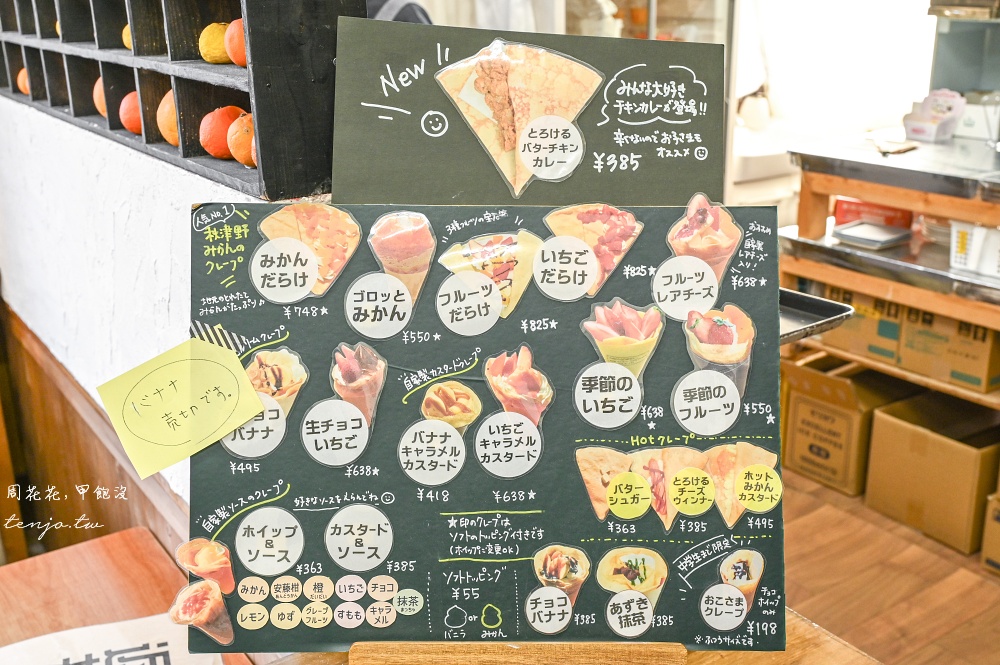 New!!
みんな大好き
チキンカレーが登場!!
とろける
バターチキン
カレー
辛くないのでお子さまも
オススメ
¥385
人気No.1
秋津野
みかんの
クレープ
地元のとれたて
みかんがたっぷり♪
みかん
だらけ
¥748★
ゴロッと
みかん
¥550★
3種フルーツの宝石箱
フルーツ
だらけ
¥825★
いちご
だらけ
¥825★
フルーツ
レアチーズ
おすすめ
自家製
レアチーズ
入り!
¥638★
バナナ
売切です。
リームクレープ
チョコ
バナナ
¥495
生チョコ
いちご
¥638★
自家製カスタードクレープ
バナナ
キャラメル
カスタード
¥418
いちご
キャラメル
カスタード
¥638★
季節の
いちご
¥638
★
季節の
フルーツ
¥550
★
Hotクレープ
バター
シュガー
¥363
とろける
チーズ
ウィンナー
¥385
ホット
みかん
カスタード
¥495
自家製ソースのクレープ
好きなソースをえらんでね
ホイップ
&
ソース
¥363
カスタード
&
ソース
¥385
みかん
安藤柑
あんどうかん
橙
だいだい
いちご
チョコ
抹茶
まっちゃ
レモン
ゆず
グレープ
フルーツ
すもも
キャラ
メル
★印のクレープは
ソフトのトッピング付きです
(ホイップに変更ok)
ソフトトッピング
¥55
バニラ
or
みかん
チョコ
バナナ
¥385
あずき
抹茶
¥385
中学生まで限定
おこさま
クレープ
チョコ
ホイップ
のみ
¥198
※ふつうサイズです。
周花花,甲飽沒
tenjo.tw